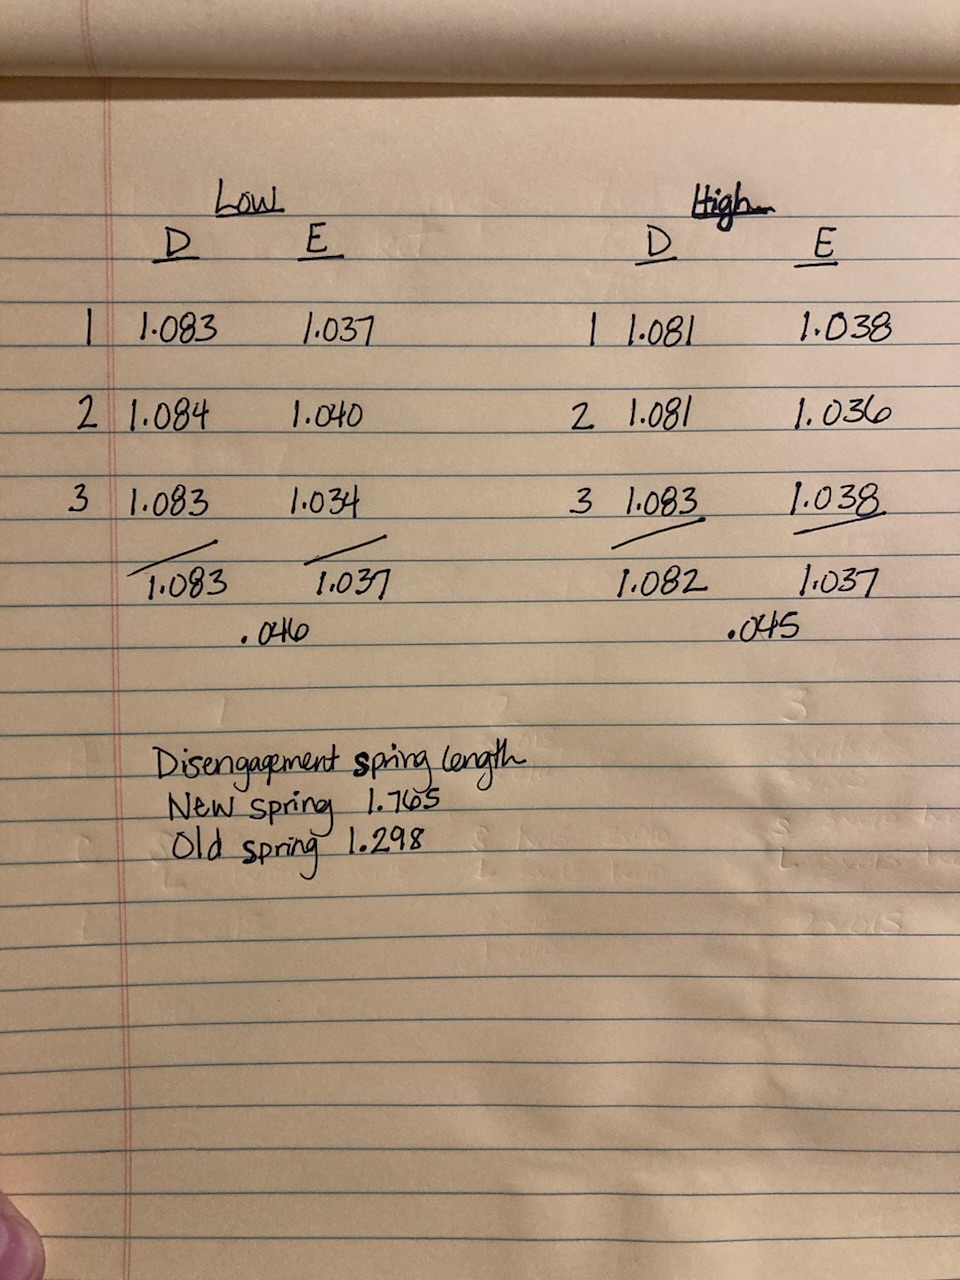 Low High
D E D E
1 1.083 1.037 1 1.081 1.038
2 1.084 1.040 2 1.081 1.036
3 1.083 1.034 3 1.083 1.038
1.083 1.037 1.082 1.037
.046 .045
Disengagement spring length
New spring 1.765
Old spring 1.298